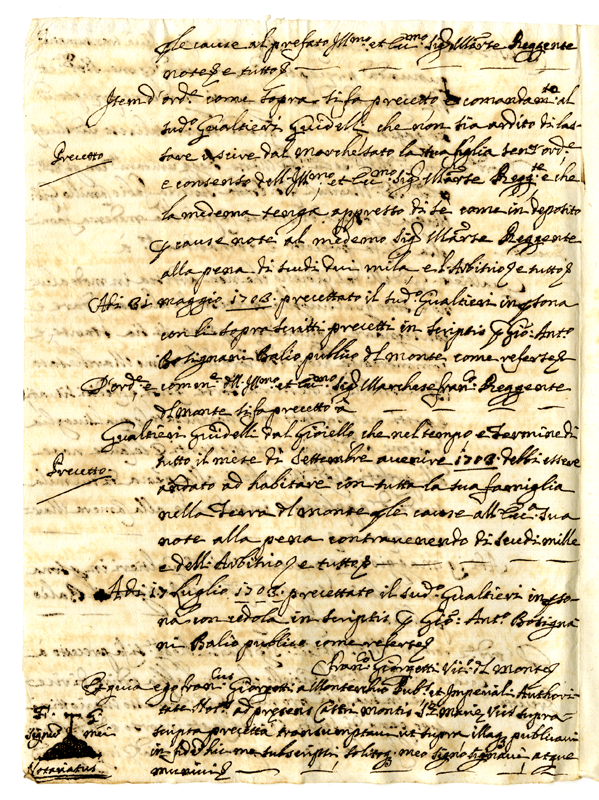 le cause al prefato Ill.mo et Ecc.mo Sig.r March.se Reggente
note e tutto
Item d'ord.e come sopra si fa precetto e comandam.to al
sud.o Gualtieri Guidelli che non sia ardito di las-
Precetto
sare uscire dal Marchesato la sua figlia senz'ord.e
e consenso dell'Ill.mo, et Ecc.mo Sig. March.se Regg.te e che
la medema tenga appresso di se come in deposito
p cause note al medemo Sig. March.se Reggente
alla pena di scudi dui mila, e l'Arbitrio e tutto
Adi 31 maggio 1708 precettato il sud.o Gualtieri in psona
con li soprascritti precetti in scriptis p Gio: Ant.o
Bolignani Balio publico dl monte come referse
D'ord.e, e comm.e dll Ill.mo et Ecc.mo Sig. Marchese Fran.co Reggente
dl monte si fa precetto à
Gualtieri Guidelli dal Gioiello, che nel tempo e termine di
tutto il mese di Settembre avenire 1708 debbi essere
Precetto
andato ad habitare con tutta la sua famiglia
nella Terra dl monte p le cause all'Ecc.a Sua
note alla pena contravenendo di Scudi mille
e dell'Arbitrio e tutto
Adi 17 luglio 1708 precettato il sud.o Gualtieri in pso-
na con cedola in scriptis p Gio: Ant.o Boligna
ni Balio publico come referse
Fran.co Giorgetti Vic.o dl Monte
Et quia ego Fran.cus Giorgetti a Monterchio Pub.s et Imperiali Authori
tate Not.s ad presens Castri Montis S.te Marie Vic.s supra-
scripta precetta transumptavi ut supra illaq. publicavi
in fidem hic me subscripsi solitoq. meo signo signavi atque
munivi
Signum mei
Notariatus